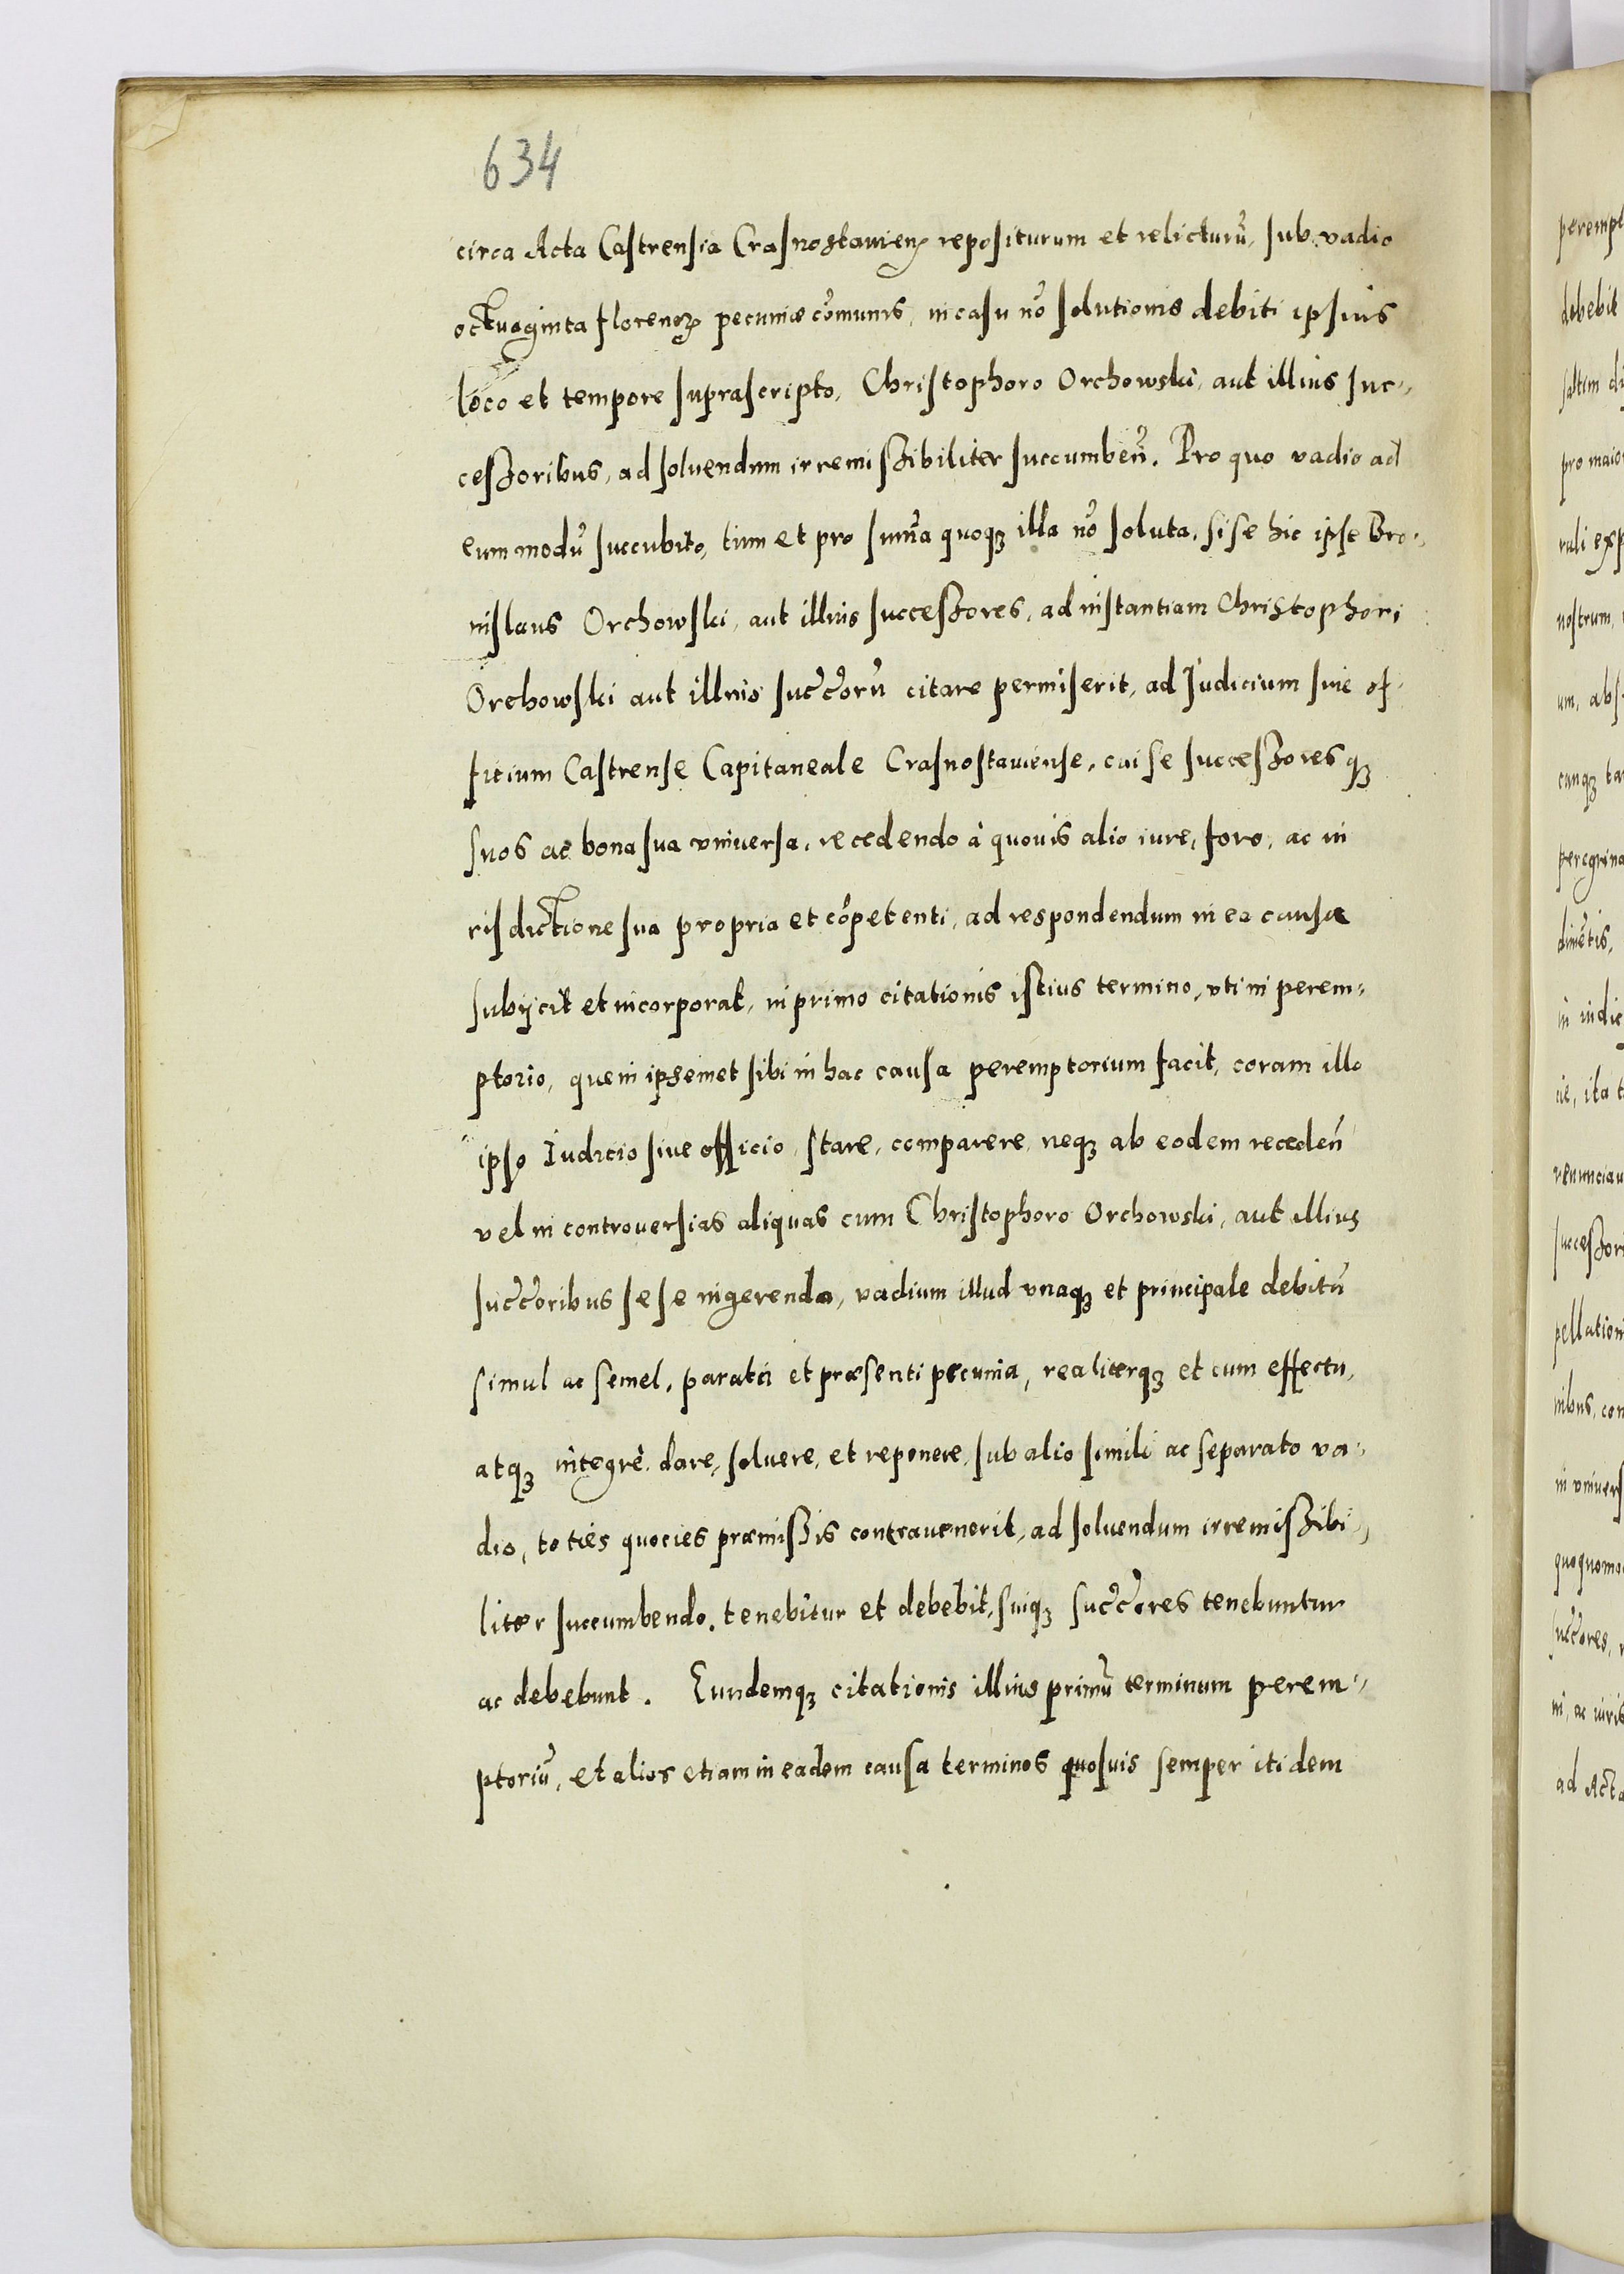 634
circa Acta Castrensia Crasnostauien̄ repositurum et relicturū, sub vadio
octuaginta florenoꝝ pecuniæ com̄unis, in casu nō solutionis debiti ipsius
loco et tempore suprascripto, Christophoro Orchowski, aut illius suc-
cessoribus, ad soluendum irremissibiliter succumben̄. Pro quo vadio ad
eum modū succubito, tum et pro sum̄a quoqꝫ illa nō soluta, si se hic ipse Bro-
nislaus Orchowski, aut illius successores, ad instantiam Christophori
Orchowski aut illius succ̄orū citare permiserit, ad Iudicium siue of-
ficium Castrense Capitaneale Crasnostauiense, cui se successoresqꝫ
suos ac bona sua vniuersa, recedendo à quouis alio iure, foro, ac iu
risdictione sua propria et cōpetenti, ad respondendum in ea causa
subijcit et incorporat, in primo citationis istius termino, vti in perem-
ptorio, quem ipsemet sibi in hac causa peremptorium facit, coram illo
ipso Iudicio siue officio stare, comparere, neqꝫ ab eodem receden̄
vel in controuersias aliquas cum Christophoro Orchowski, aut illius
succ̄oribus sese ingerendo, vadium illud vnaqꝫ et principale debitū
simul ac semel, parata et præsenti pecunia, realiterqꝫ et cum effectu,
atqꝫ integrè dare, soluere, et reponere, sub alio simili ac separato va-
dio, toties quocies præmissis contrauenerit, ad soluendum irremissibi-
liter succumbendo, tenebitur et debebit, suiqꝫ succ̄ores tenebuntur
ac debebunt. Eundemqꝫ citationis illius primū terminum perem-
ptoriū, et alios etiam in eadem causa terminos quosuis semper itidem